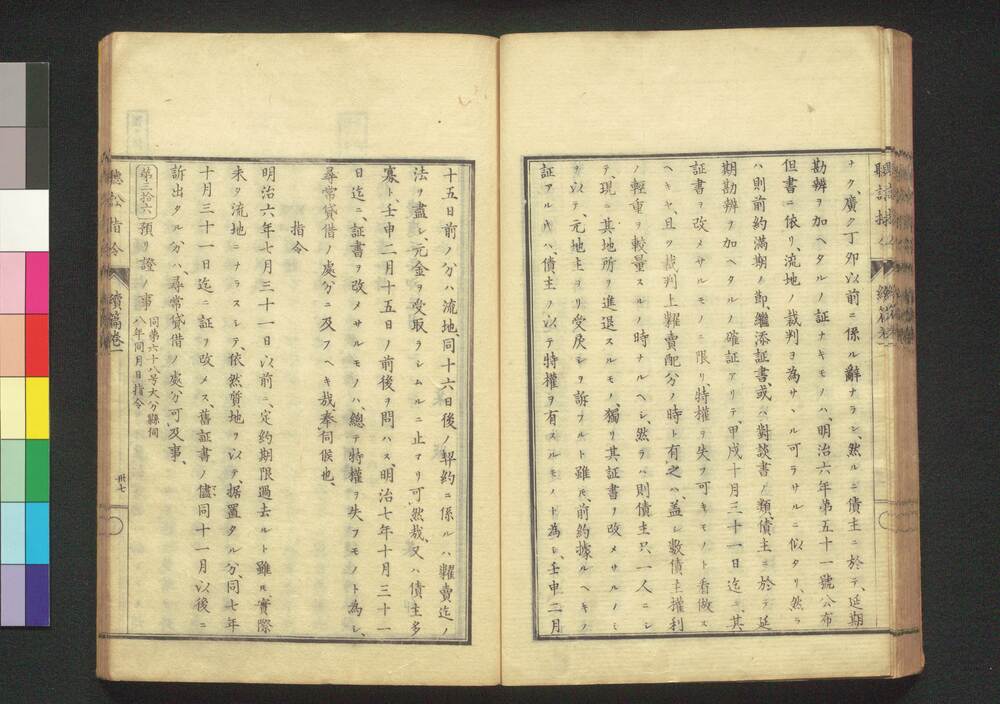 ナク、廣ク丁卯以前ニ係ル辭ナラシ、然ルニ債主ニ於テ、延期
勘辨ヲ加ヘタルノ証ナキモノハ、明治六年第五十一號公布
但書ニ依リ、流地ノ裁判ヲ為サヽル可ラサルニ似タリ、然ラ
ハ則前約滿期ノ節、繼添証書、或ハ對談書ノ類、債主ニ於テ延
期勘辨ヲ加ヘタルノ確証アリテ、甲戌十月三十一日迄ニ、其
証書ヲ改メサルモノニ限リ、特權ヲ失フ可キモノト看做ス
ヘキヤ、且ツ裁判上糶賣配分ノ時ト有之ハ、蓋シ數債主權利
ノ輕重ヲ較量スルノ時ナルヘシ、然ラハ則債主只一人ニシ
テ、現ニ其地所ヲ進退スルモノ、獨リ其証書ヲ改メサルノミ
ヲ以テ、元地主ヨリ受戻シヲ訴フルト雖𪜈、前約據ルヘキノ
証アル𪜈ハ、債主ノ以テ特權ヲ有スルモノト為シ、壬申二月
十五日前ノ分ハ流地、同十六日後ノ契約ニ係ルハ糶賣迄ノ
法ヲ盡シ、元金ヲ受取ラシムルニ止マリ可然哉、又ハ債主多
寡ト、壬申二月十五日ノ前後ヲ問ハス、明治七年十月三十一
日迄ニ、証書ヲ改メサルモノハ、總テ特權ヲ失フモノト為シ、
尋常貸借ノ處分ニ及フヘキ哉、奉伺候也、
指令
明治六年七月三十一日以前ニ、定約期限過去ルト雖𪜈、實際
未タ流地ニナラスシテ、依然質地ヲ以テ、据置タル分、同七年
十月三十一日迄ニ証ヲ改メス、舊証書ノ儘同十一月以後ニ
訴出タル分ハ、尋常貸借ノ處分可及事、
第三拾六 預リ證ノ事 同第六十八号大分縣伺
八年同月日指令
聽訟指令 續篇卷一 卅七